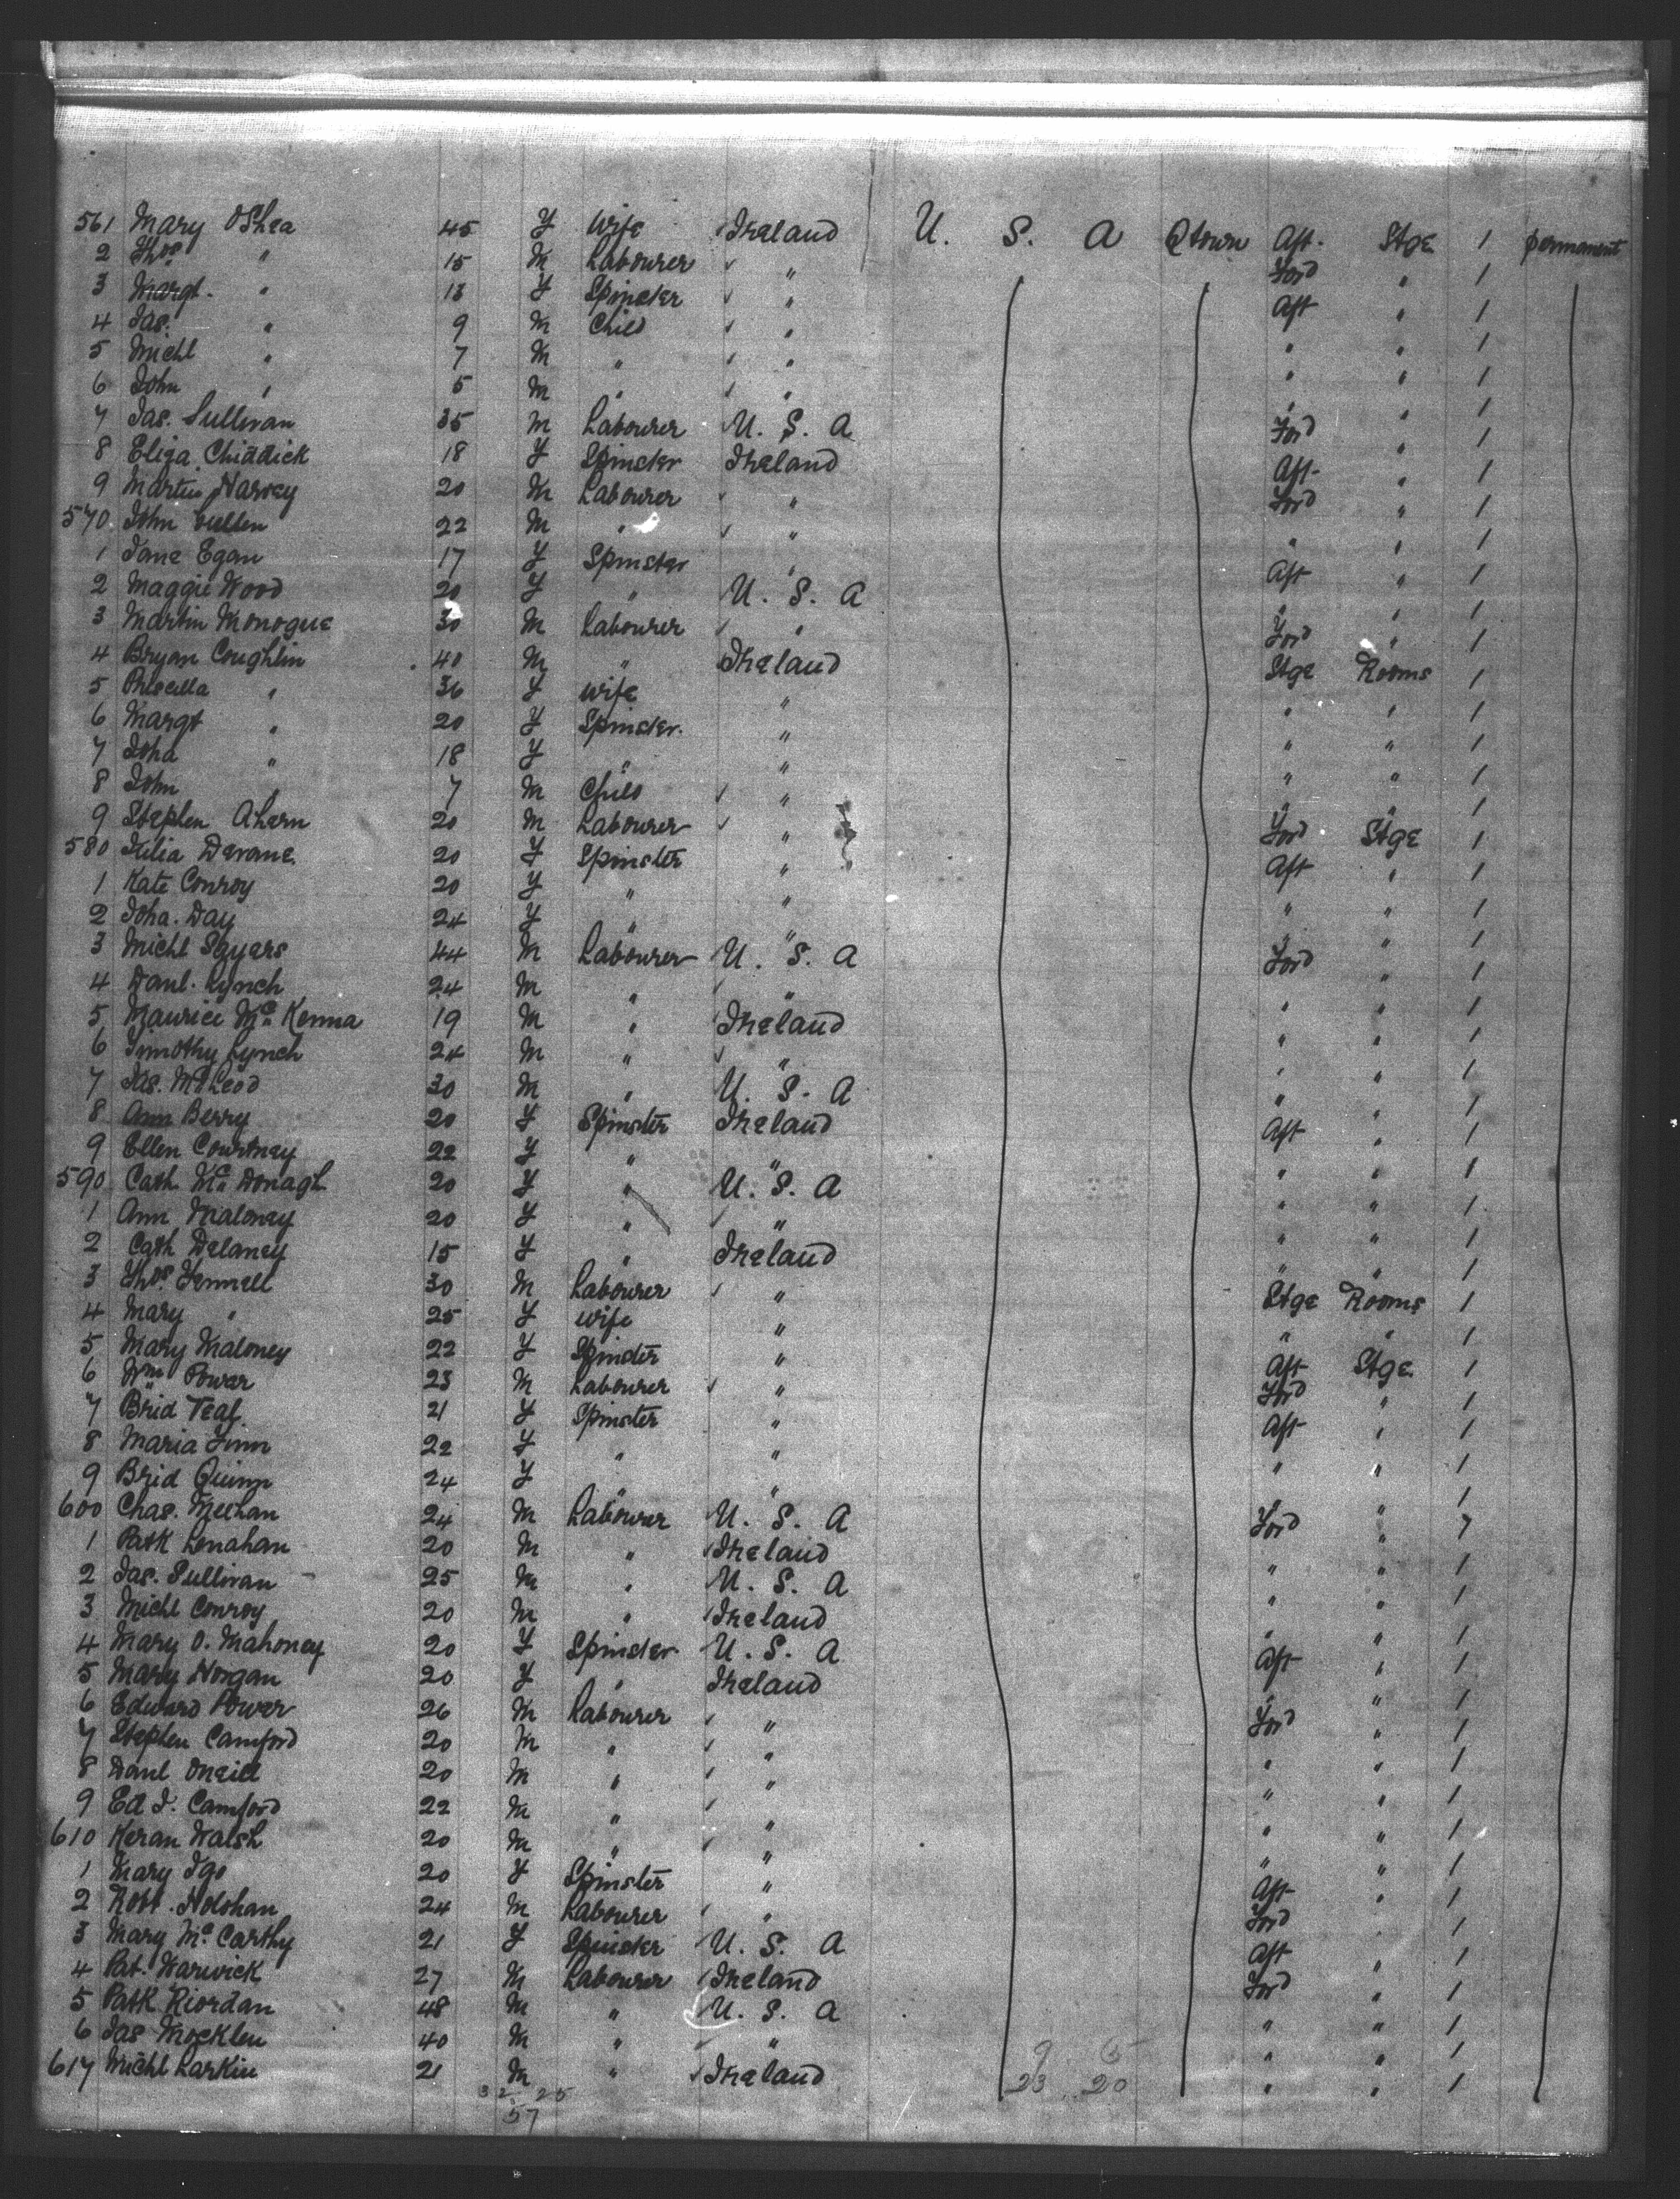 561 Mary OShea 45 F Wife Ireland U. S. A Qtown Aft. Stge 1 permanent
2 Thos " 15 M Labourer " Ford " 1
3 Margt. " 13 F Spinster " Aft " 1
4 Jas. " 9 M Child " " " 1
5 Michl " 7 M " " " " 1
6 John " 5 M " " " " 1
7 Jas. Sullivan 35 M Labourer U. S. A Ford " 1
8 Eliza Chiddick 18 F Spinster Ireland Aft " 1
9 Martin Harvey 20 M Labourer " Ford " 1
570 John Cullen 22 M " " " " 1
1 Jane Egan 17 F Spinster " Aft " 1
2 Maggie Wood 20 F " U. S. A " " 1
3 Martin Monogue 30 M Labourer " Ford " 1
4 Bryan Coughlin 40 M " Ireland Stge Rooms 1
5 Priscilla " 36 F Wife " " " 1
6 Margt " 20 F Spinster " " " 1
7 Joha " 18 F " " " " 1
8 John " 7 M Child " " " 1
9 Stephen Ahern 20 M Labourer " Ford Stge 1
580 Julia Devane 20 F Spinster " Aft " 1
1 Kate Conroy 20 F " " " " 1
2 Joha. Day 24 F " " " " 1
3 Michl Sayars 44 M Labourer U. S. A Ford " 1
4 Danl. Lynch 24 M " " " " 1
5 Maurice McKenna 19 M " Ireland " " 1
6 Timothy Lynch 24 M " " " " 1
7 Jas. McLeod 30 M " U. S. A " " 1
8 Ann Berry 20 F Spinster Ireland Aft " 1
9 Ellen Courtney 22 F " " " " 1
590 Cath McDonagh 20 F " U. S. A " " 1
1 Ann Maloney 20 F " " " " 1
2 Cath Delaney 15 F " Ireland " " 1
3 Thos. Fennell 30 M Labourer " Stge Rooms 1
4 Mary " 25 F Wife " " " 1
5 Mary Maloney 22 F Spinster " Aft Stge 1
6 Wm Power 23 M Labourer " Ford " 1
7 Brid Teaf 21 F Spinster " Aft " 1
8 Maria Finn 22 F " " " " 1
9 Brid Quinn 24 F " " " " 1
600 Chas. Meehan 24 M Labourer U. S. A Ford " 1
1 Patk Lenahan 20 M " Ireland " " 1
2 Jas. Sullivan 25 M " U. S. A " " 1
3 Michl Conroy 20 M " Ireland " " 1
4 Mary O. Mahoney 20 F Spinster U. S. A Aft " 1
5 Mary Horgan 20 F " Ireland " " 1
6 Edward Power 26 M Labourer " Ford " 1
7 Stephen Camford 20 M " " " " 1
8 Danl Oneill 20 M " " " " 1
9 Ed J. Camford 22 M " " " " 1
610 Keran Walsh 20 M " " " " 1
1 Mary Igo 20 F Spinster " Aft " 1
2 Robt. Holohan 24 M Labourer " Ford " 1
3 Mary McCarthy 21 F Spinster U. S. A Aft " 1
4 Pat. Warwick 27 M Labourer Ireland Ford " 1
5 Patk Riordan 48 M " U. S. A " " 1
6 Jas Mocklen 40 M " " " " 1
617 Michl Larkin 21 M " Ireland " " 1
32 25 23 20
57